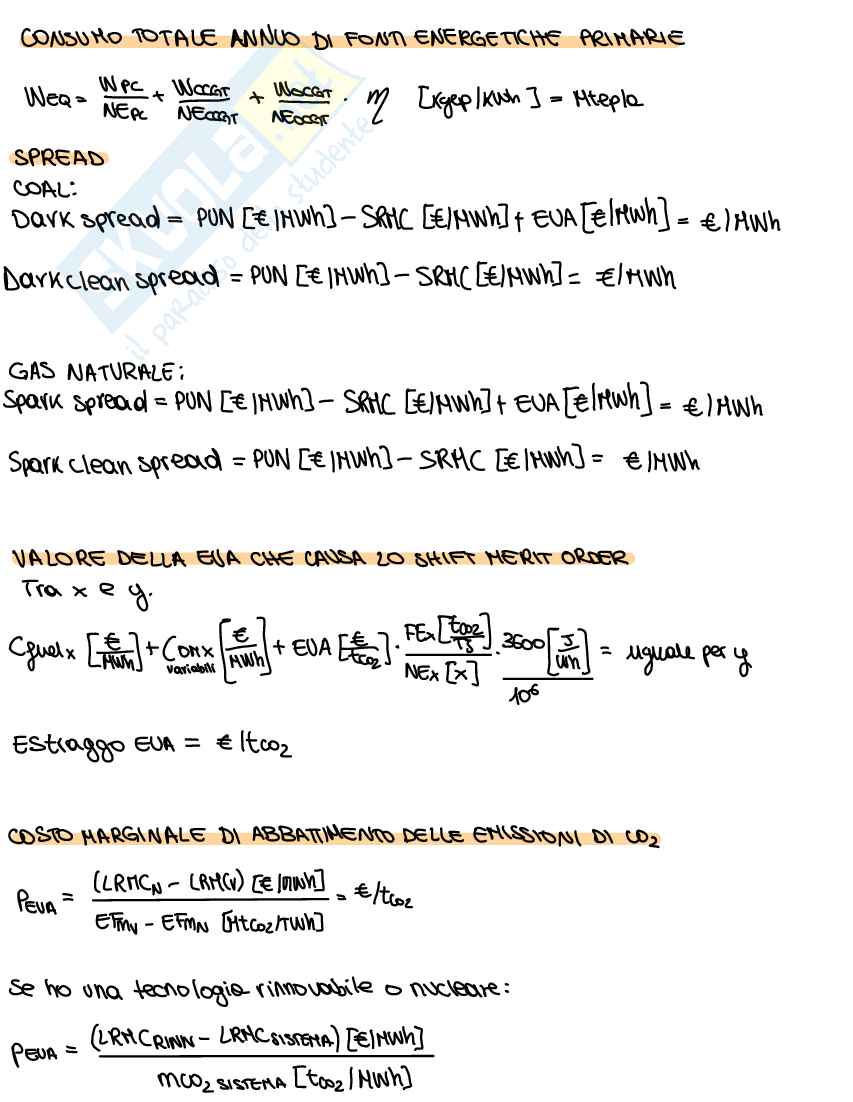 CONSUMO TOTALE ANNUO DI FONTI ENERGETICHE PRIMARIE
WEQ = WPC/NEPC + WCCGT/NECCGT + WOCGT/NEOCGT · η [Kgep/KWh] = Mtep/a
SPREAD
COAL:
Dark spread = PUN [€/MWh] – SRMC [€/MWh] + EUA [€/MWh] = €/MWh
Dark clean spread = PUN [€/MWh] – SRMC [€/MWh] = €/MWh
GAS NATURALE:
Spark spread = PUN [€/MWh] – SRMC [€/MWh] + EUA [€/MWh] = €/MWh
Spark clean spread = PUN [€/MWh] – SRMC [€/MWh] = €/MWh
VALORE DELLA EUA CHE CAUSA LO SHIFT MERIT ORDER
Tra x e y.
Cfuelx [€/MWh] + COMX variabili [€/MWh] + EUA [€/tCO2] · FEx [tCO2/TJ] / NEx [x] · 3600 [J/Wh] / 10⁶ = uguale per y
Estraggo EUA = €/tCO2
COSTO MARGINALE DI ABBATTIMENTO DELLE EMISSIONI DI CO2
PEUA = (LRMCN – LRMCV) [€/MWh] / EFmV – EFmN [MtCO2/TWh] = €/tCO2
Se ho una tecnologia rinnovabile o nucleare:
PEUA = (LRMCRINN – LRMCSISTEMA) [€/MWh] / mCO2 SISTEMA [tCO2/MWh]
SKUOLA.net
il paradiso dello studente